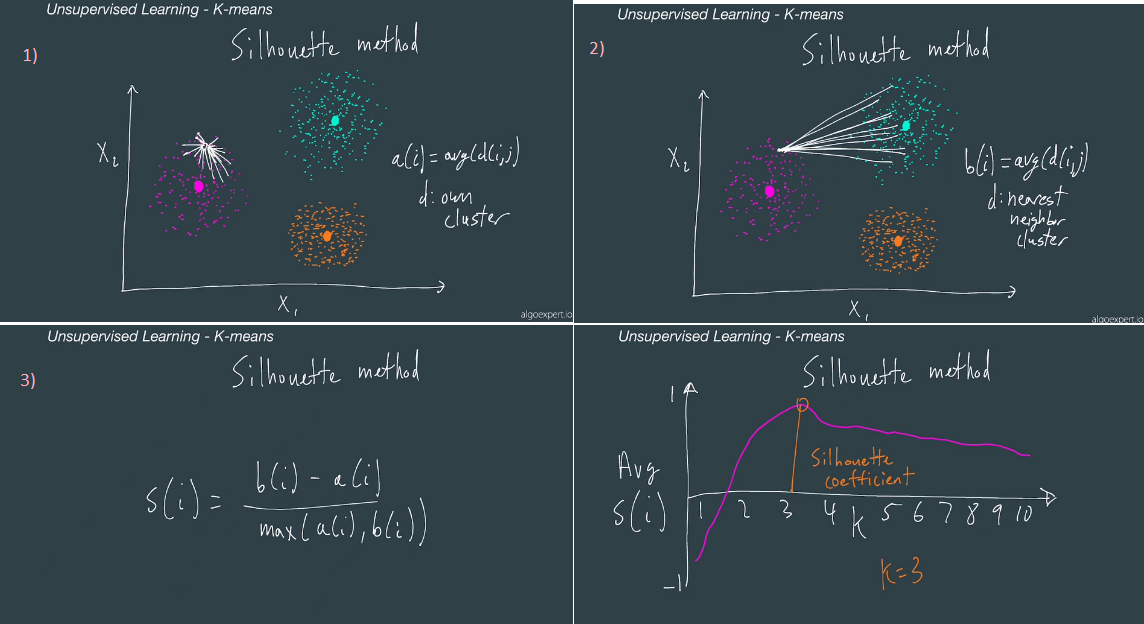 Unsupervised Learning - K-means
1)
Silhouette method
X₂
a(i) = avg(d(i,j)
d: own
cluster
X₁
algoexpert.io
Unsupervised Learning - K-means
2)
Silhouette method
X₂
b(i) = avg(d(i,j)
d: nearest
neighbor
cluster
X₁
algoexpert.io
Unsupervised Learning - K-means
3)
Silhouette method
s(i) =
b(i) - a(i)
max(a(i), b(i))
Unsupervised Learning - K-means
Silhouette method
1
Avg
s(i)
Silhouette
coefficient
1 2 3 4 5 6 7 8 9 10
K
-1
K=3